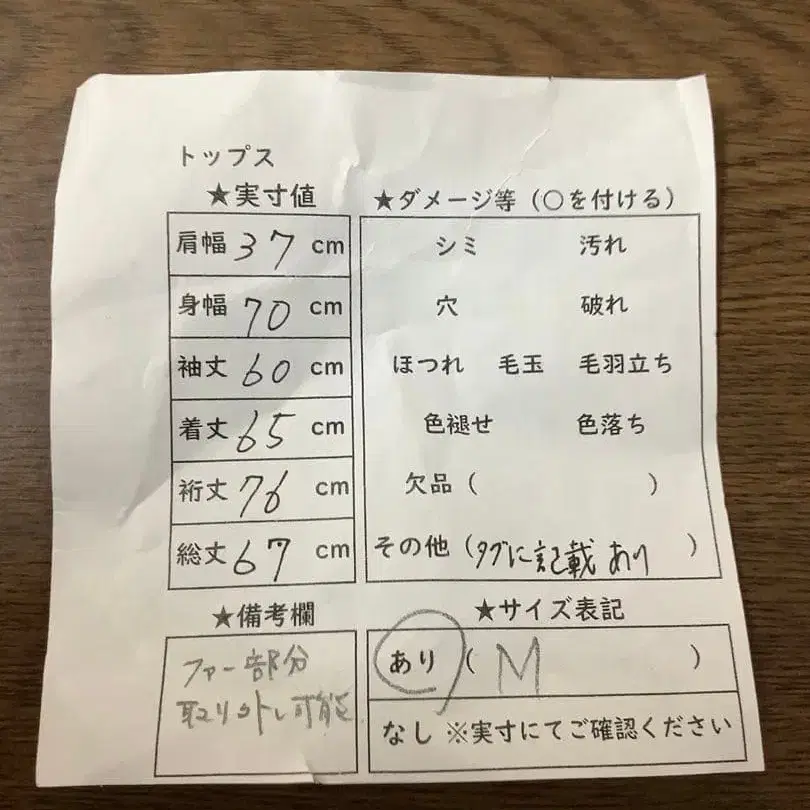 トップス
★実寸値
肩幅 37 cm
身幅 70 cm
袖丈 60 cm
着丈 65 cm
裄丈 76 cm
総丈 67 cm
★ダメージ等（○を付ける）
シミ 汚れ
穴 破れ
ほつれ 毛玉 毛羽立ち
色褪せ 色落ち
欠品（ ）
その他（タグに記載あり ）
★備考欄
ファー部分
取り外し可能
★サイズ表記
あり（ M ）
なし ※実寸にてご確認ください